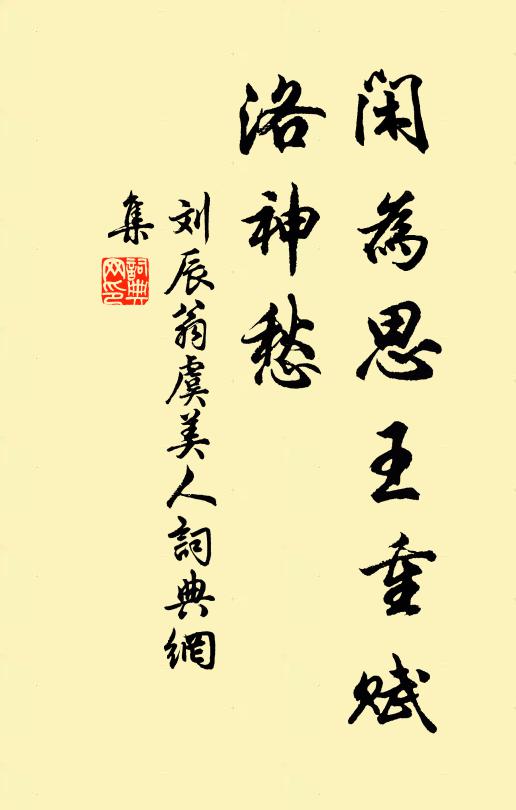 闲為思王重赋
洛神愁
刘辰翁虞美人詞典網
集
詞典
网印